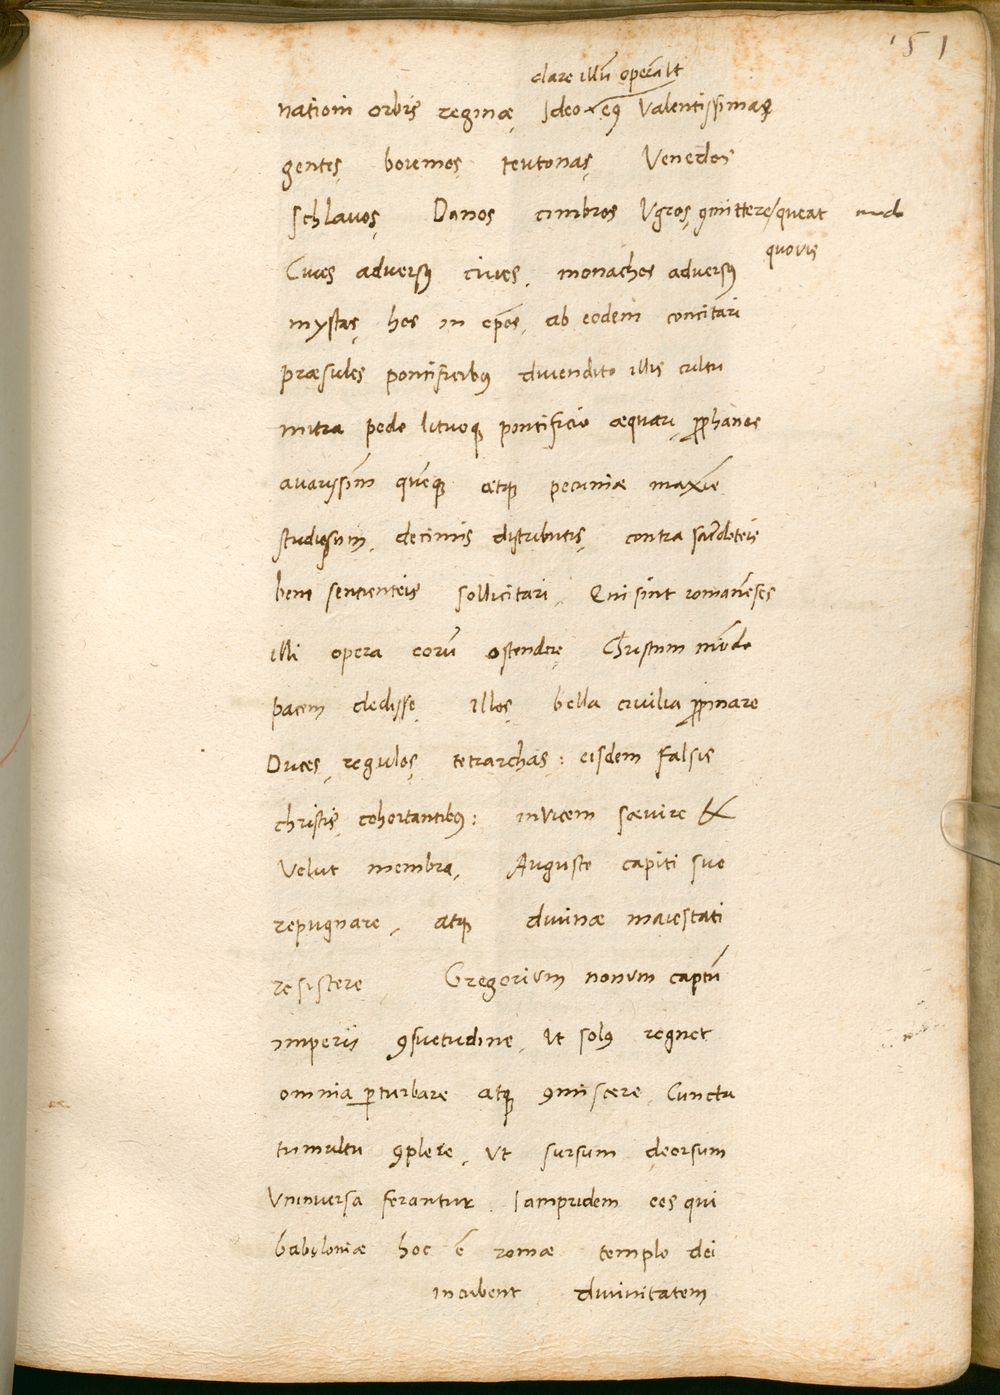 151
clare illũ operãlt
nationi orbis reginæ, Ideo eꝗ Valentissimas
gentes, boremos, teutonas, Venedos
schlavos, Danos cimbros Vgros, ꝯmittere/queat modo
quovis
Cives adversꝰ cives, monachos adversꝰ
mystas, hos in ep̃os, ab eodem concitari
præsules pontificibꝰ divendito illis cultu
mitra pede lituoqꝫ pontificio æquari, ꝓphanos
avarissim̃ quẽqꝫ atqꝫ pecuniæ maxĩe
studiosum, decimis distributis, contra sacerdoteis
bene sentienteis sollicitari, Qui sint romanẽses
illi opera eorũ ostendere, Christum mũdo
pacem dedisse, illos, bella civilia ꝓpinare
Duces, regulos, tetrarchas: eisdem falsis
christis, cohortantibꝰ: invicem sævire &
Velut membra, Auguste capiti suo
repugnare, atqꝫ divinæ maiestati
resistere, Gregorium nonum captũ
imperii ꝯsuetudine, Vt solꝰ regnet
omnia ꝑturbare atqꝫ ꝯmiscere, Cuncta
tumultu ꝯplere, Vt sursum deorsum
Vniversa ferantur, Iampridem eos qui
babyloniæ hoc ẽ romæ templo dei
incubent divinitatem